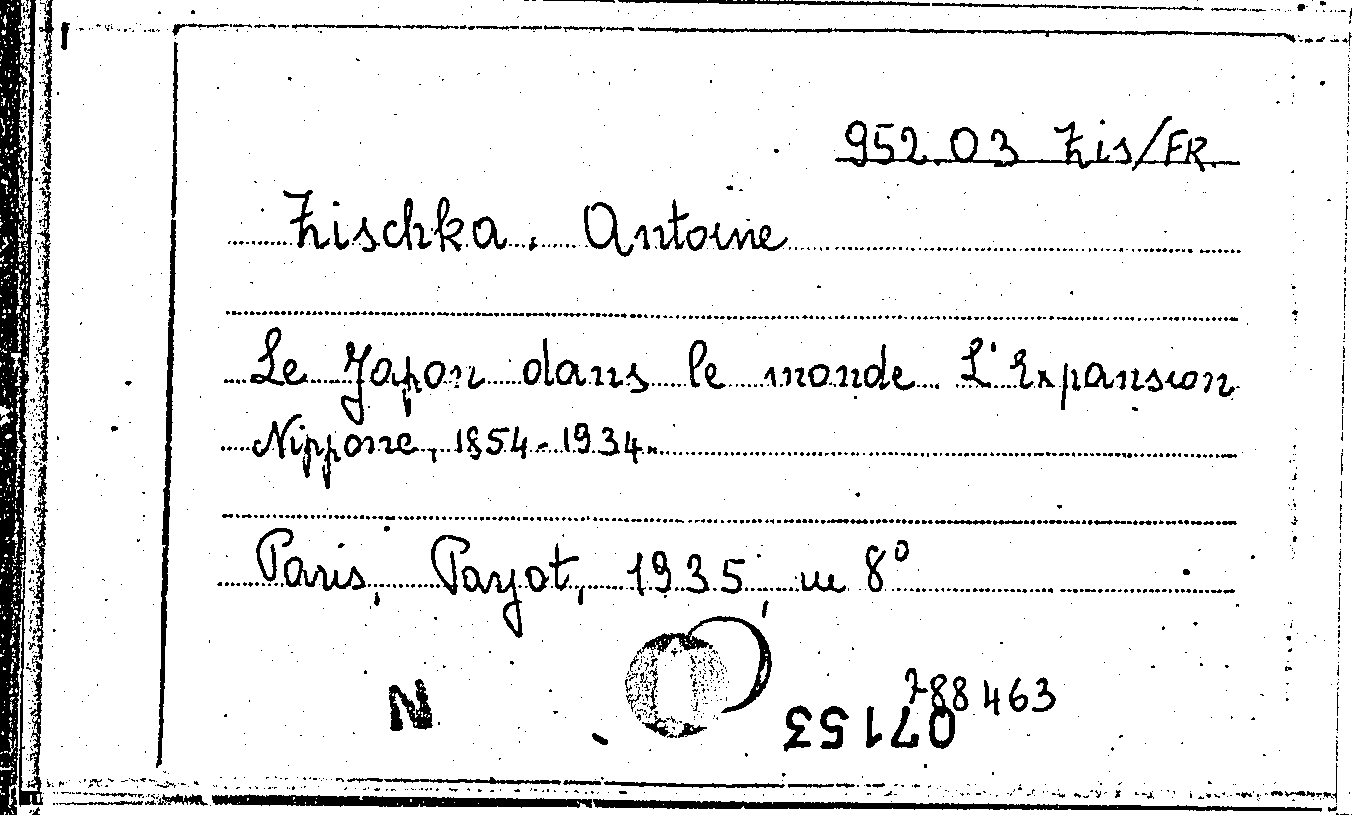 952.03 Zis/FR.
Zischka. Antoine
Le Japon dans le monde. L'Expansion
Nippone, 1854-1934.
Paris, Payot, 1935, in 8°
N
788463
07153